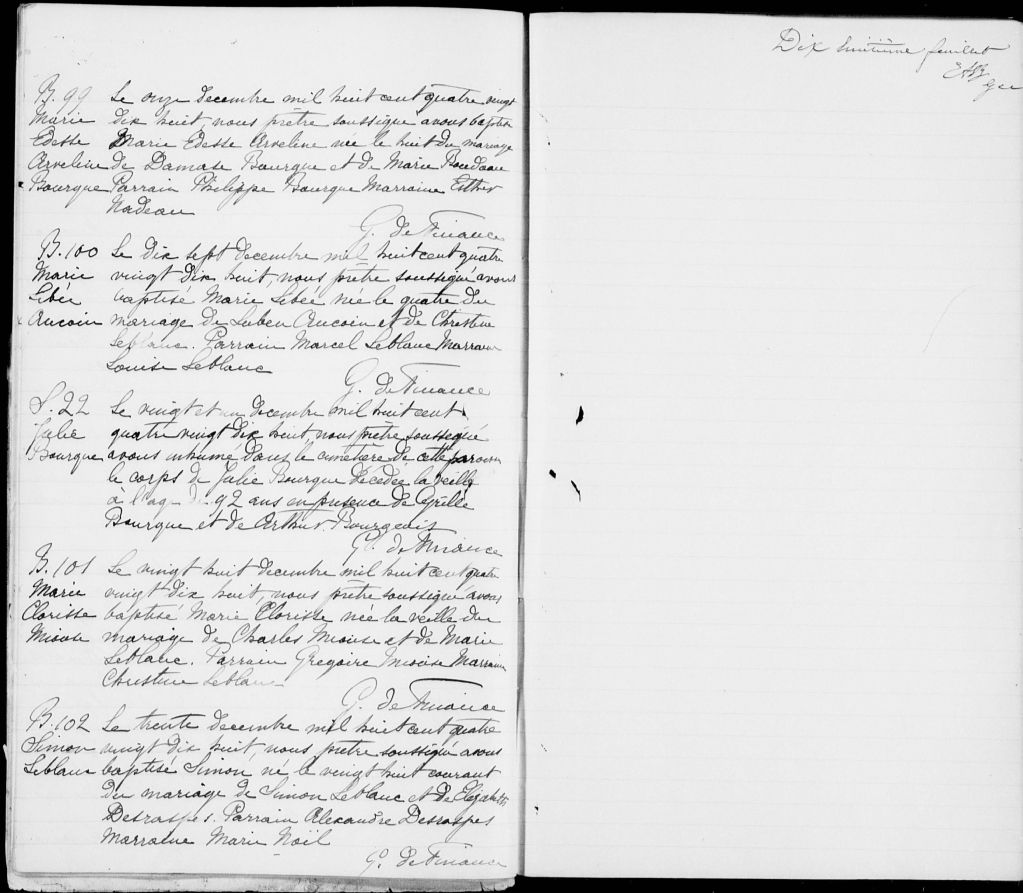 B. 99 Le onze decembre mil huit cent quatre vingt
Marie dix huit, nous prêtre soussigné avons baptisé
Edesse Marie Edesse Arveline née le huit du mariage
Arveline de Damase Bourque et de Marie Boudreau
Bourque Parrain Philippe Bourque Marraine Esther
Nadeau
G. de Finance
B. 100 Le dix sept decembre mil huit cent quatre
Marie vingt dix huit, nous prêtre soussigné avons
Libée baptisé Marie Libée née le quatre du
Aucoin mariage de Luben Aucoin et de Christine
Leblanc. Parrain Marcel Leblanc Marraine
Louise Leblanc
G. de Finance
S. 22 Le vingt et un decembre mil huit cent
Julie quatre vingt dix huit, nous prêtre soussigné
Bourque avons inhumé dans le cimetière de cette paroisse
le corps de Julie Bourque décédée la veille
à l'age de 92 ans en presence de Cyrille
Bourque et de Arthur Bourgeois
G. de Finance
B. 101 Le vingt huit decembre mil huit cent quatre
Marie vingt dix huit, nous prêtre soussigné avons
Clorisse baptisé Marie Clorisse née la veille du
Mioise mariage de Charles Mioise et de Marie
Leblanc. Parrain Gregoire Mioise Marraine
Christine Leblanc
G. de Finance
B. 102 Le trente decembre mil huit cent quatre
Simon vingt dix huit, nous prêtre soussigné avons
Leblanc baptisé Simon né le vingt huit courant
du mariage de Simon Leblanc et de Elizabeth
Desraspes. Parrain Alexandre Desraspes
Marraine Marie Noël
G. de Finance
Dix huitième feuillet